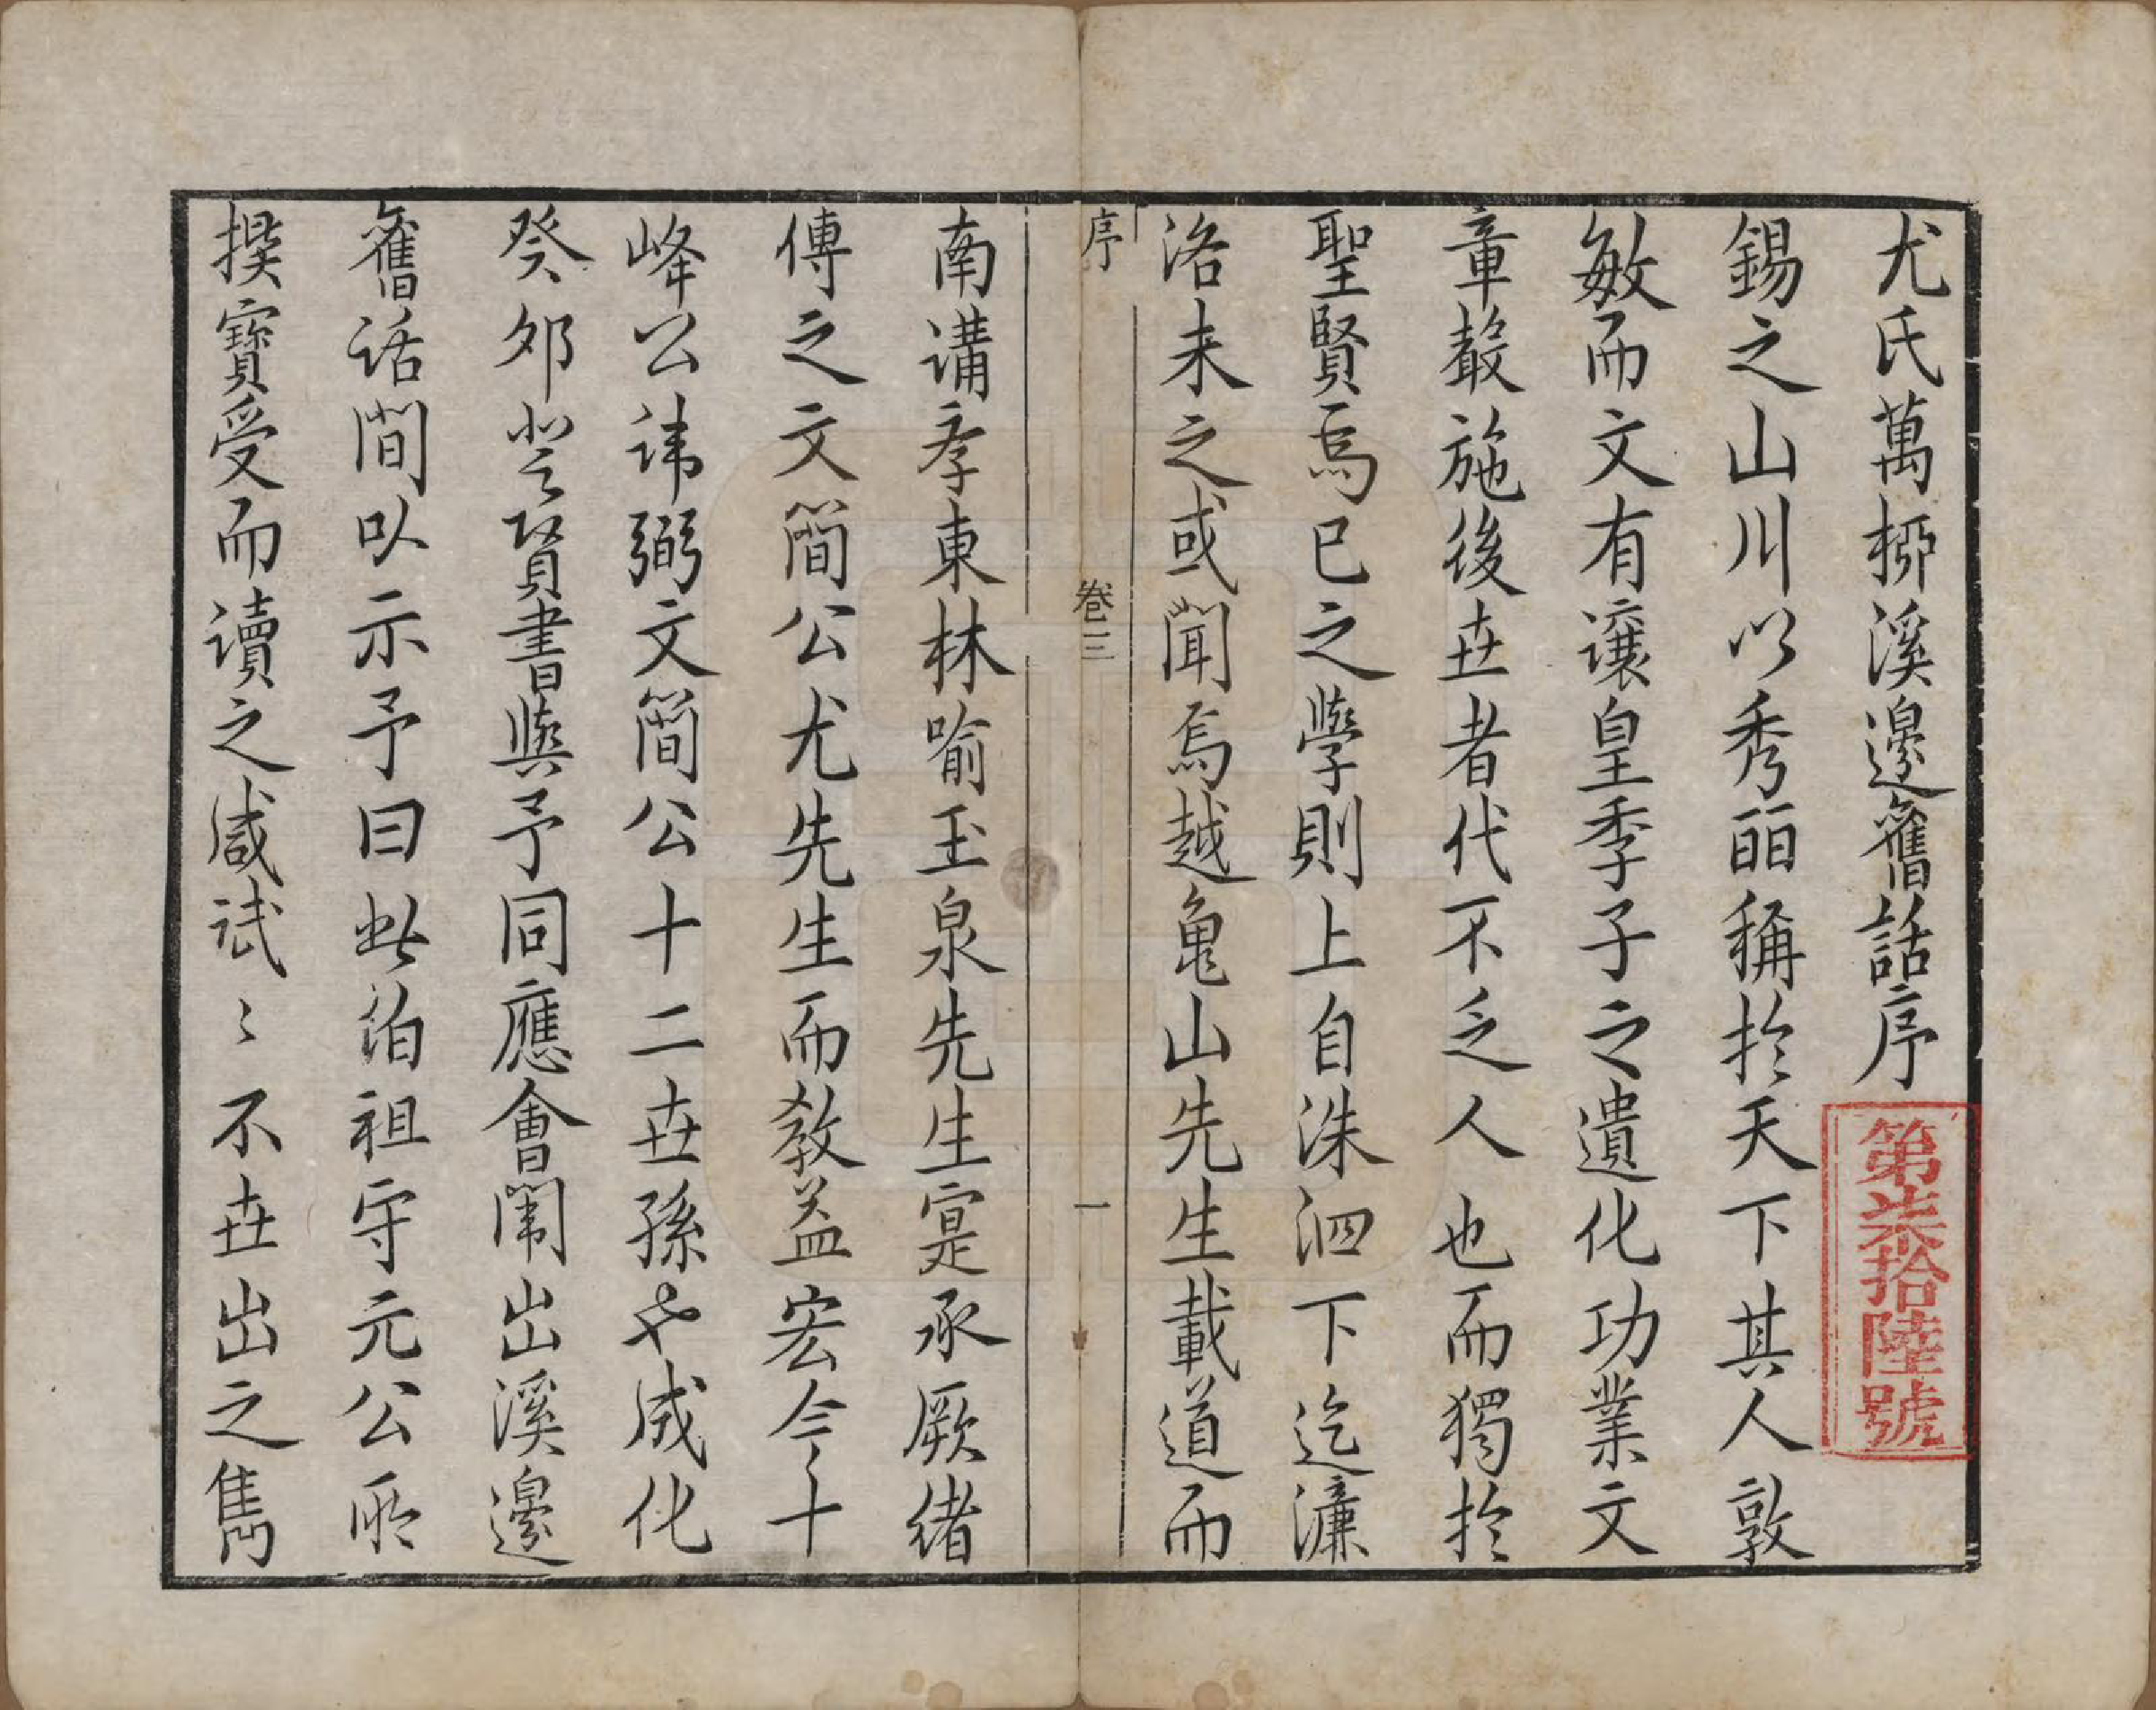 尤氏萬柳溪邊舊話序
第柒拾陸號
錫之山川以秀丽稱於天下其人敦
敏而文有讓皇季子之遺化功業文
章發施後世者代不乏人也而獨於
聖賢爲已之學則上自洙泗下迄濂
洛未之或聞焉越龜山先生載道而
序
卷三
一
南講孝東林喻玉泉先生寔承厥緒
傳之文簡公尤先生而教益宏今十
峰公諱弼文簡公十二世孫也成化
癸夘登賢書與予同應會闈出溪邊
舊话間以示予曰此伯祖守元公所
撰寶受而讀之咸誠〻不世出之雋